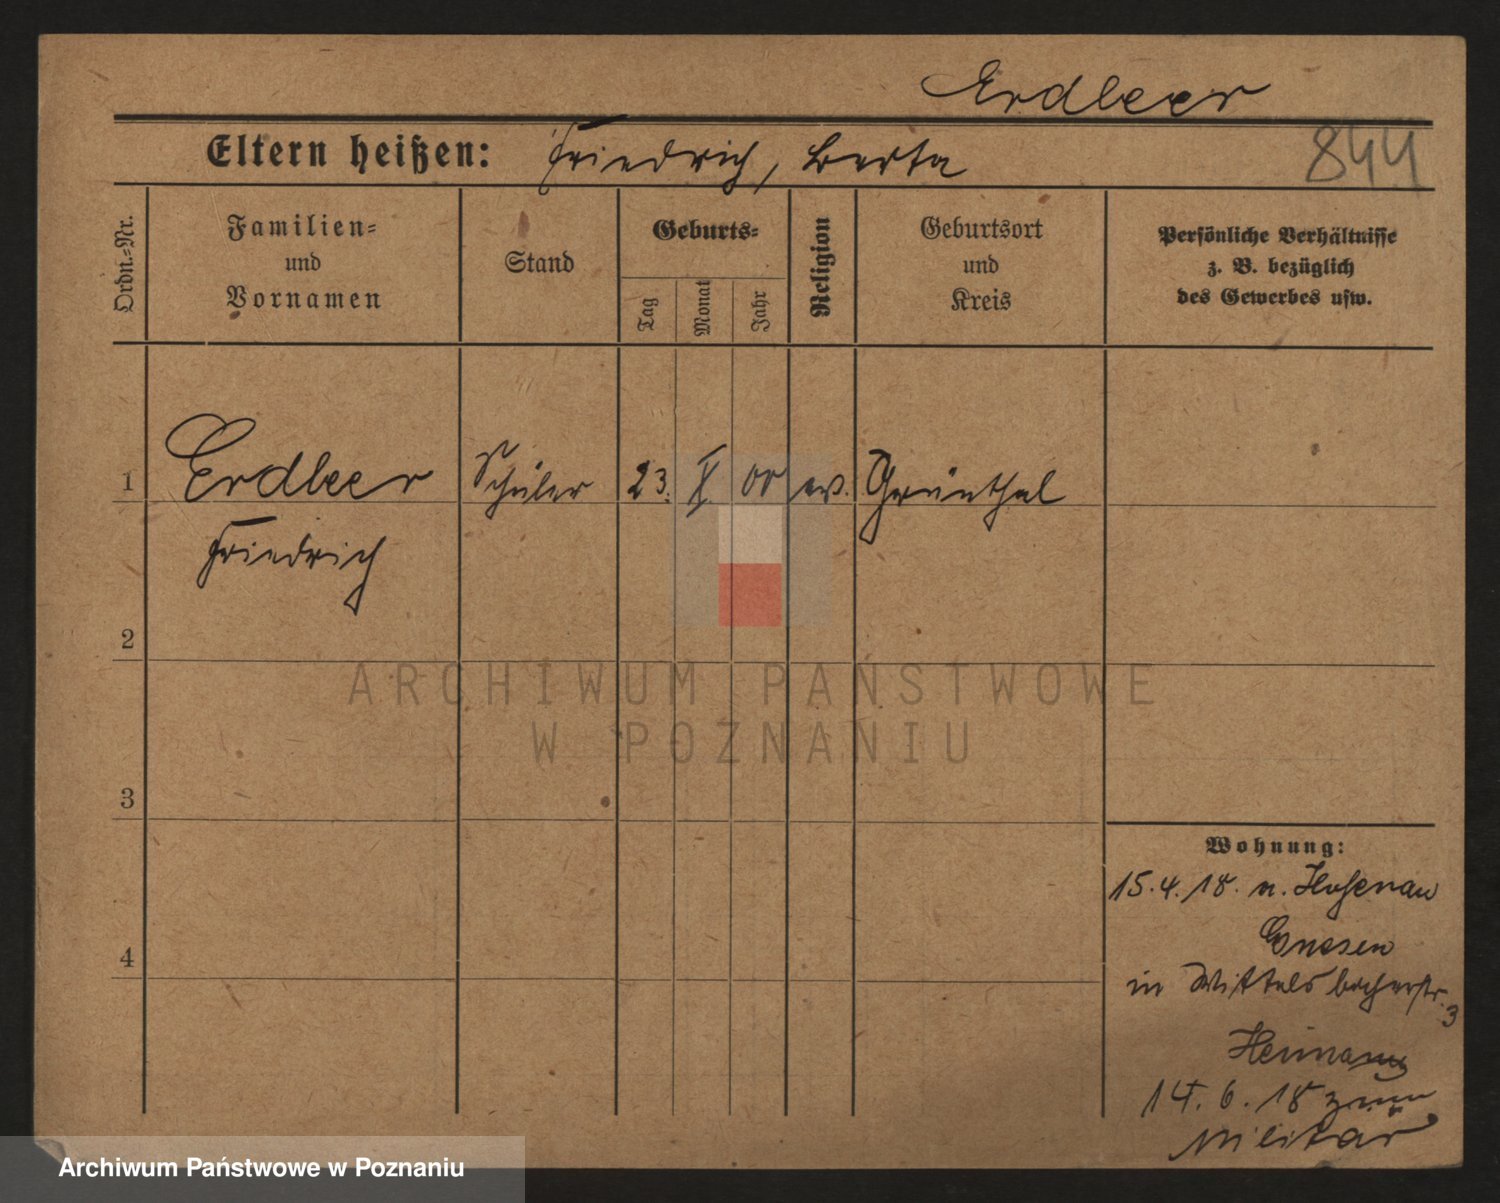 Erdbeer
Eltern heißen: Friedrich, Berta
844
Ordn.-Nr.
Familien-
und
Vornamen
Stand
Geburts-
Tag
Monat
Jahr
Religion
Geburtsort
und
Kreis
Persönliche Verhältnisse
z. B. bezüglich
des Gewerbes usw.
1
Erdbeer
Friedrich
Schüler
23.
X
00
ev.
Grünthal
2
3
4
Wohnung:
15.4.18. n.
Gnesen
in Wittelsbacherstr.
3
Heimann
14.6.18 zum
Militär
ARCHIWUM PAŃSTWOWE
W POZNANIU
Archiwum Państwowe w Poznaniu